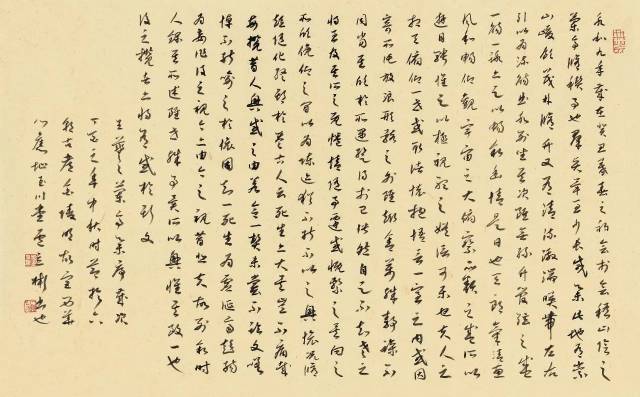 永和九年歲在癸丑暮春之初會于會稽山陰之
蘭亭脩稧事也群賢畢至少長咸集此地有崇
山峻領茂林脩竹又有清流激湍映帶左右
引以為流觴曲水列坐其次雖無絲竹管弦之盛
一觴一詠亦足以暢敘幽情是日也天朗氣清惠
風和暢仰觀宇宙之大俯察品類之盛所以
遊目騁懷足以極視聽之娛信可樂也夫人之
相與俯仰一世或取諸懷抱悟言一室之內或因
寄所託放浪形骸之外雖趣舍萬殊靜躁不
同當其欣於所遇蹔得於己怏然自足不知老之
將至及其所之既惓情隨事遷感慨係之矣向之
所欣俛仰之間以為陳迹猶不能不以之興懷況脩
短隨化終期於盡古人云死生亦大矣豈不痛哉
每攬昔人興感之由若合一契未嘗不臨文嗟
悼不能喻之於懷固知一死生為虛誕齊彭殤
為妄作後之視今亦由今之視昔悲夫故列敘時
人錄其所述雖世殊事異所以興懷其致一也
後之攬者亦將有感於斯文
王羲之蘭亭集序歲次
丁亥之年中秋時節於六
朝古都金陵明故宮西華
門舊地玉川書彬書也